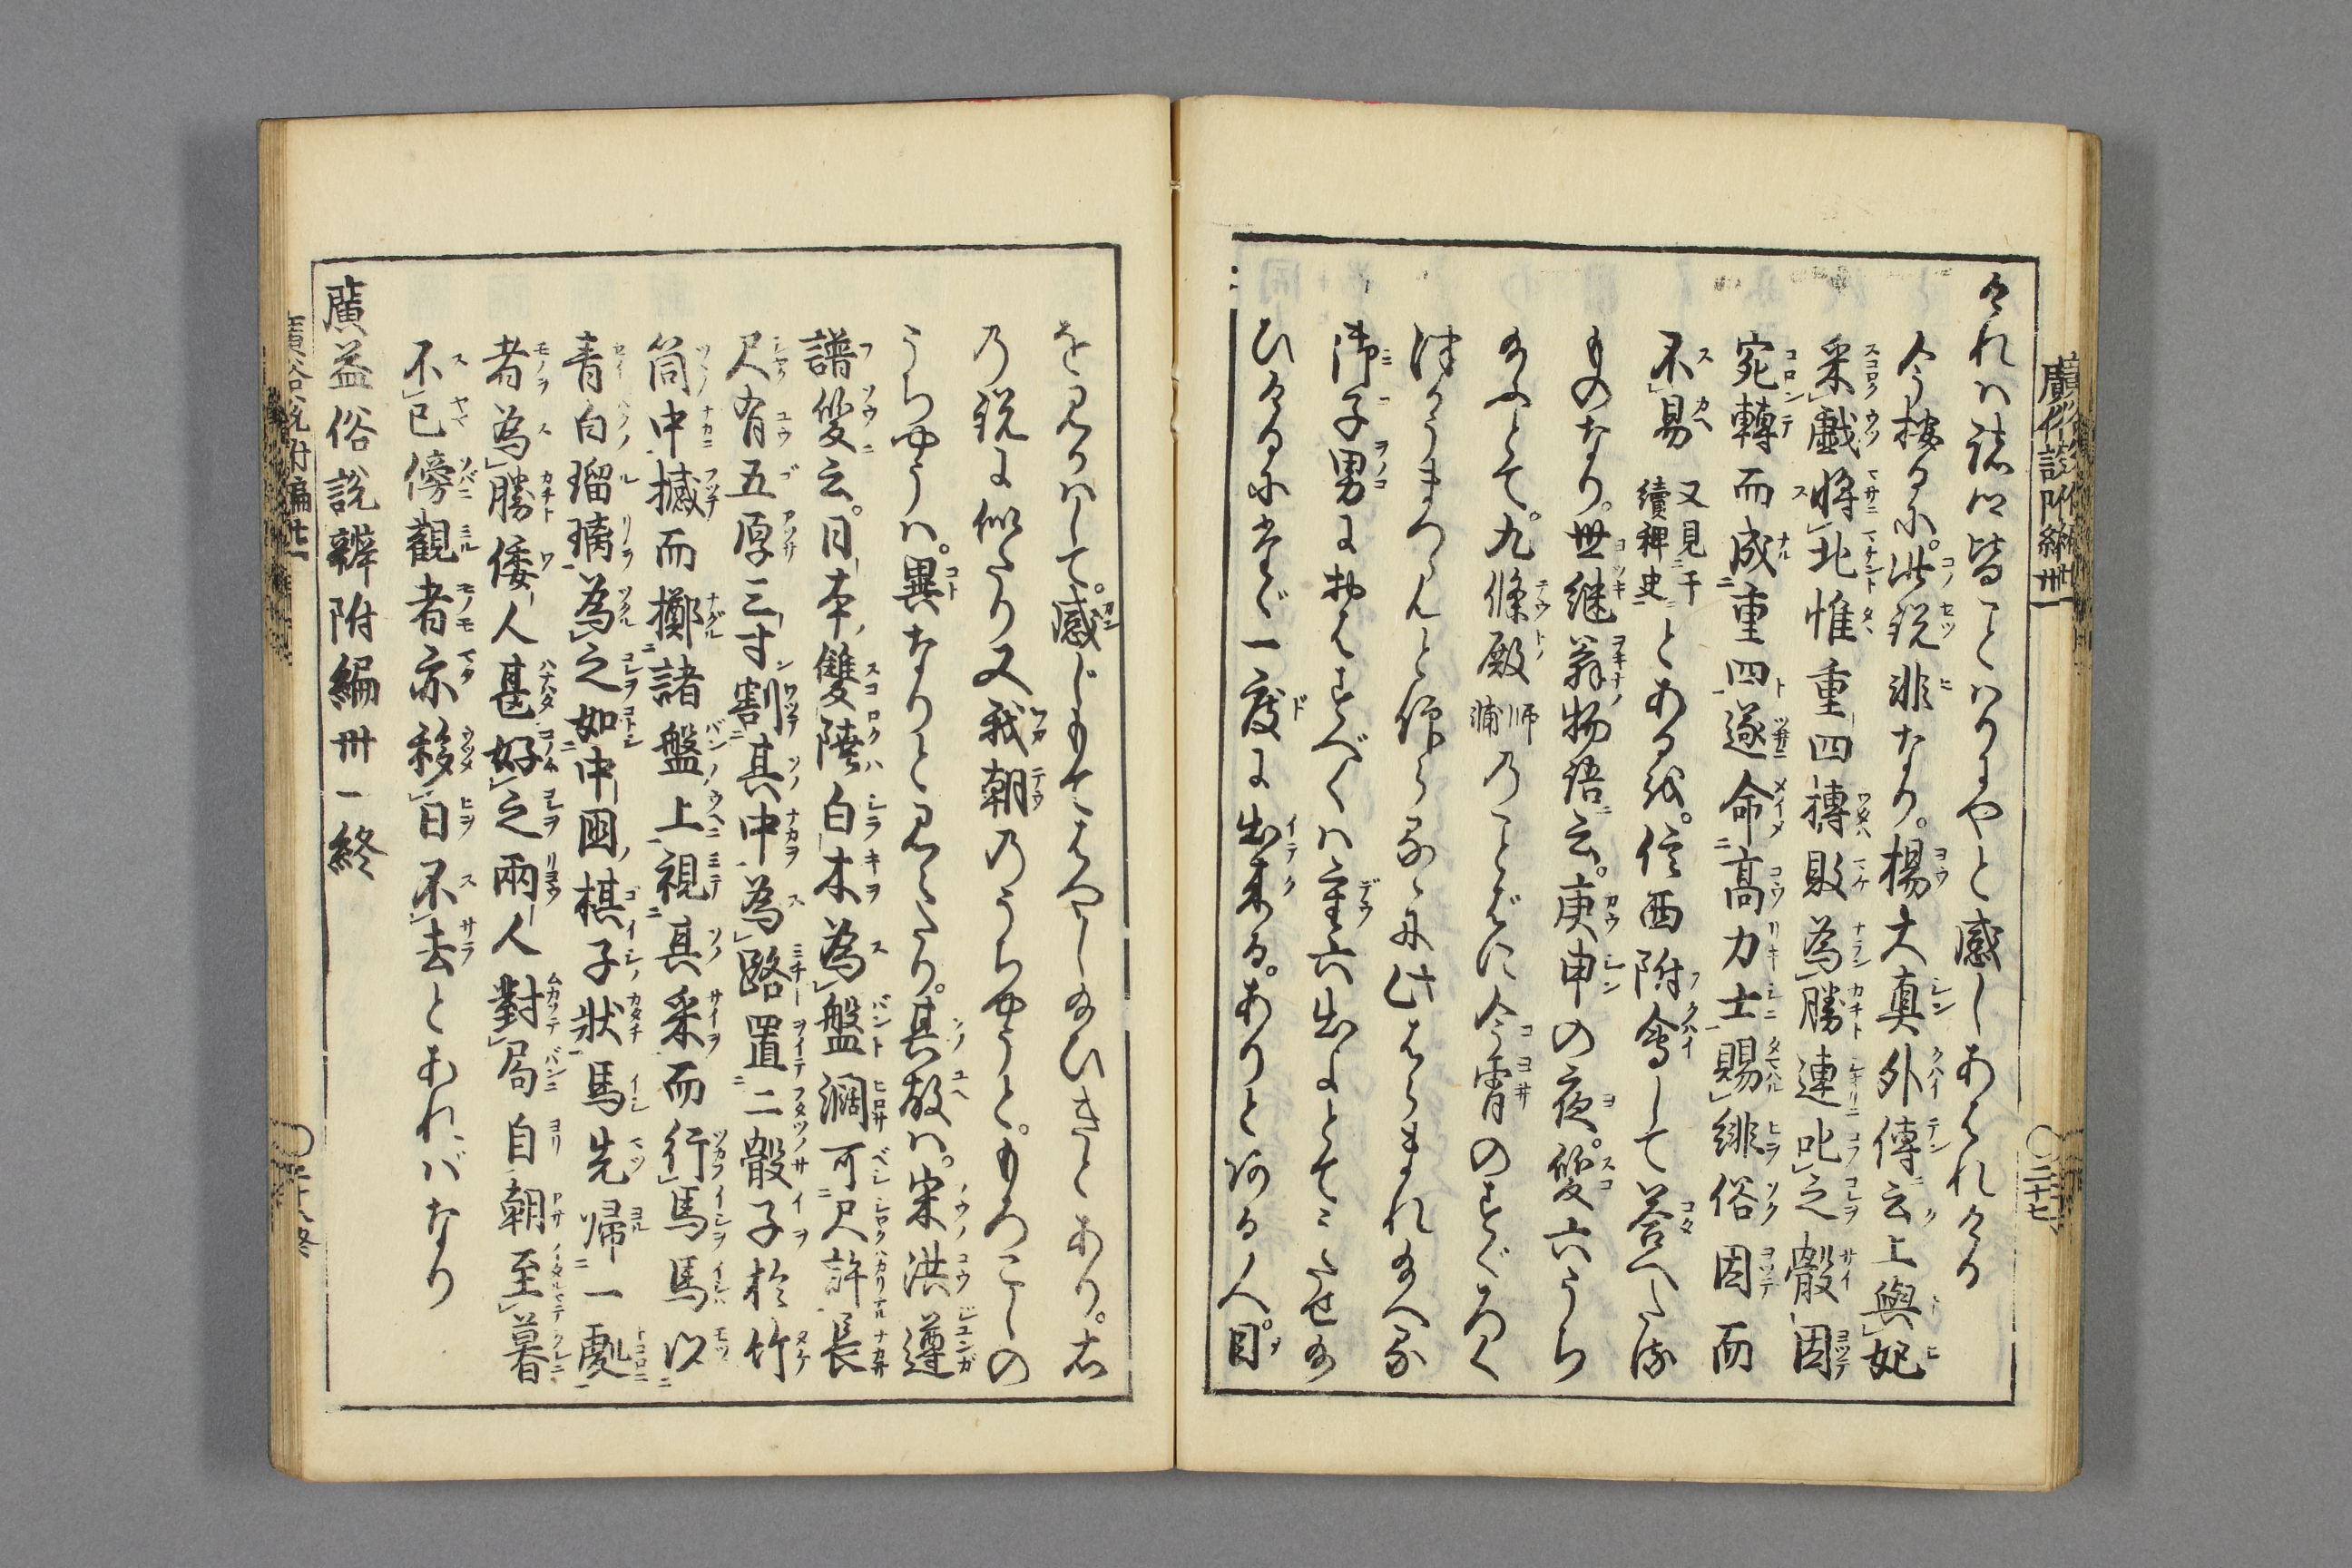 けれハ諸卿皆ことハりにやと感しあハれける
今按るに。此説非なり。楊大真外傳云上與妃
采戯將北惟重四轉敗為勝連叱之骰因
宛轉而成重四遂命高力士賜緋俗因而
不易 又見于續稗史とある就。信西附會して荅へたる
ものなり。世継翁物語云。庚申の夜。雙六うち
給ふとて。九條殿 師輔 のことばに今宵のすぐろく
つかうまつらんと仰らるゝ此はらまれ給へる
御子男におはすべくハ重六出よとてうたせ給
ひけるにたゞ一度に出来る。ありとある人。目
を見かハして。感じもてはやし給ひきとあり。右
の説に似たり又我朝のうちやうと。もろこしの
うちやうハ。異なりと見えたり。其故ハ。宋洪遵
譜雙云。日本雙陸白木為盤濶可尺許長
尺有五厚三寸割其中為路置二骰子於竹
筒中撼而擲諸盤上視其采而行馬馬以
青白瑠璃為之如中國棋子狀馬先歸一處
者為勝倭人甚好之兩人對局自朝至暮
不已傍觀者亦移日不去とあれバなり
廣益俗説辨附編卅一終
廣俗説附編卅一
二十七